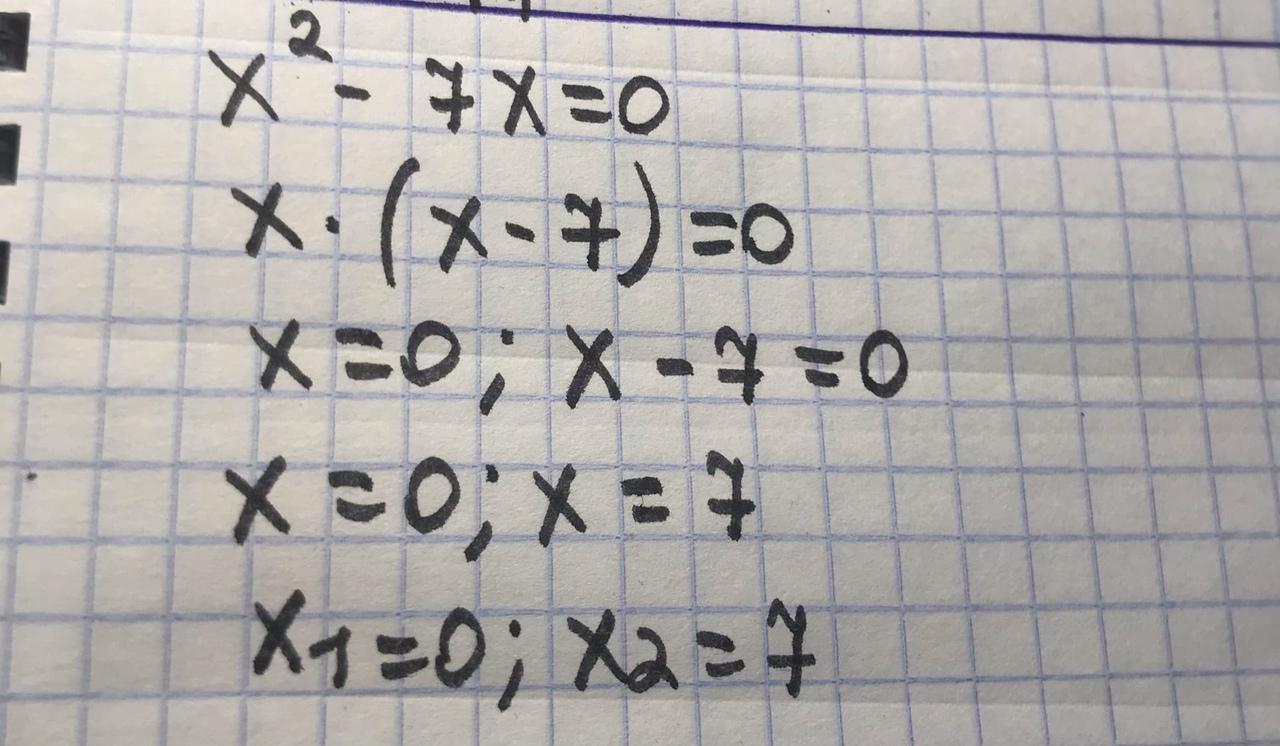 x² - 7x=0
x · (x - 7) =0
x =0; x - 7 = 0
x =0; x = 7
x₁=0; x₂=7